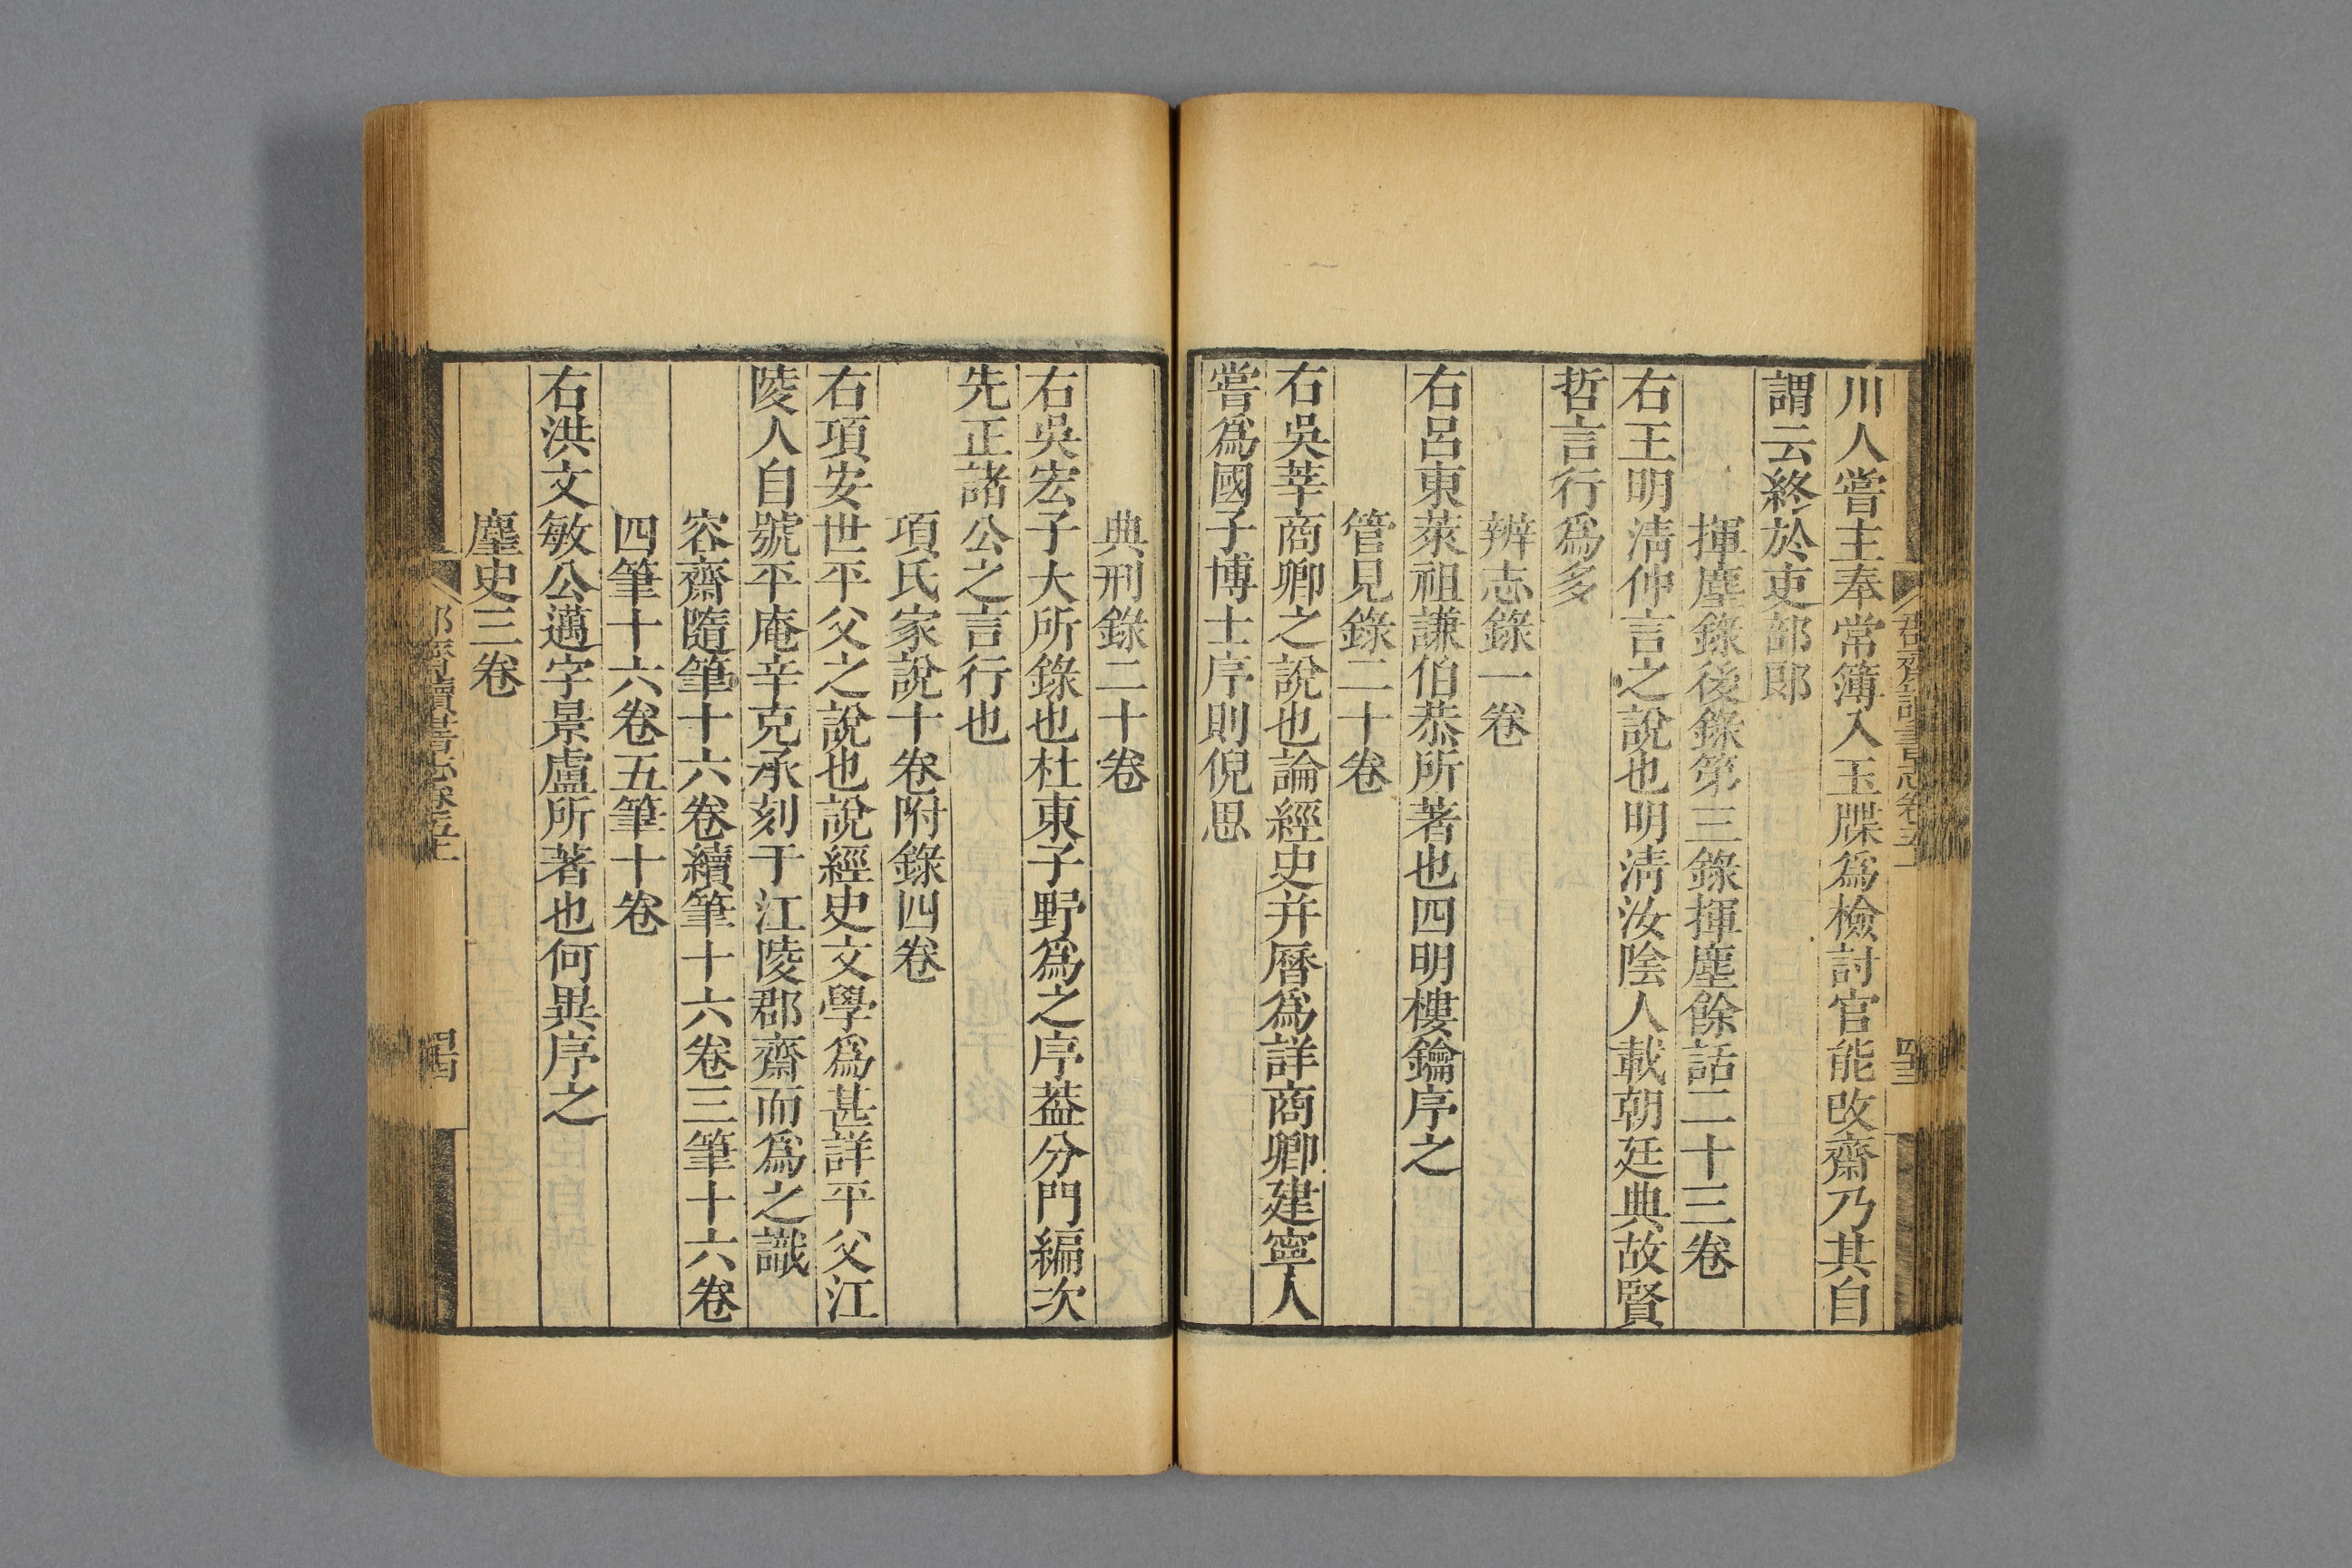 川人嘗主奉常簿入玉牒爲檢討官能改齋乃其自
謂云終於吏部郎
揮麈錄後錄第三錄揮麈餘話二十三卷
右王明清仲言之說也明清汝陰人載朝廷典故賢
哲言行爲多
辨志錄一卷
右呂東萊祖謙伯恭所著也四明樓鑰序之
管見錄二十卷
右吳莘商卿之說也論經史并曆爲詳商卿建寧人
嘗爲國子博士序則倪思
典刑錄二十卷
右吳宏子大所錄也杜東子野爲之序葢分門編次
先正諸公之言行也
項氏家說十卷附錄四卷
右項安世平父之說也說經史文學爲甚詳平父江
陵人自號平庵辛克承刻于江陵郡齋而爲之識
容齋隨筆十六卷續筆十六卷三筆十六卷
四筆十六卷五筆十卷
右洪文敏公邁字景盧所著也何異序之
麈史三卷